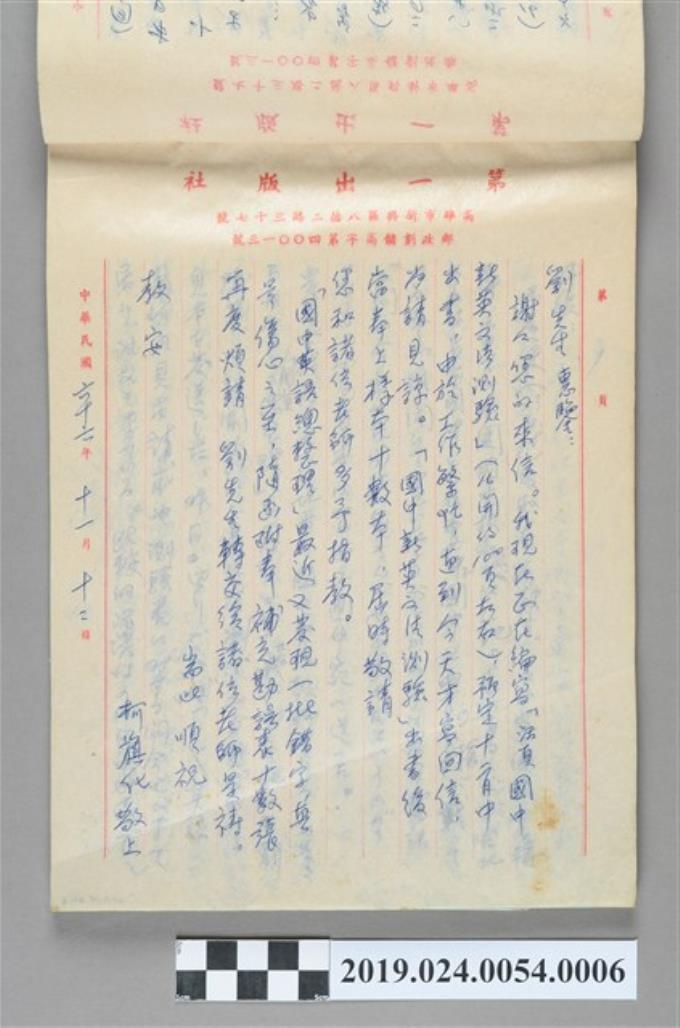 第一出版社
高雄市新興區八德二路三十七號
郵政劃撥儲高字第四〇〇一三號
第 頁
劉先生 惠鑒：
謝謝您的來信。我現在正在編寫「活頁國中
新英文法測驗」（八開約100頁左右），預定十二月中
出書，由於工作繁忙，直到今天才寫回信，
尚請見諒。「國中新英文法測驗」出書後
當奉上樣本十數本，屆時敬請
您和諸位老師多予指教。
「國中英語總整理」最近又發現一批錯字，真
是傷心之至，隨函附奉補充勘誤表十數張
再度煩請 劉先生轉交給諸位老師是禱。
耑此順祝
教安
柯旗化敬上
中華民國六十六年十一月十二日
2019.024.0054.0006